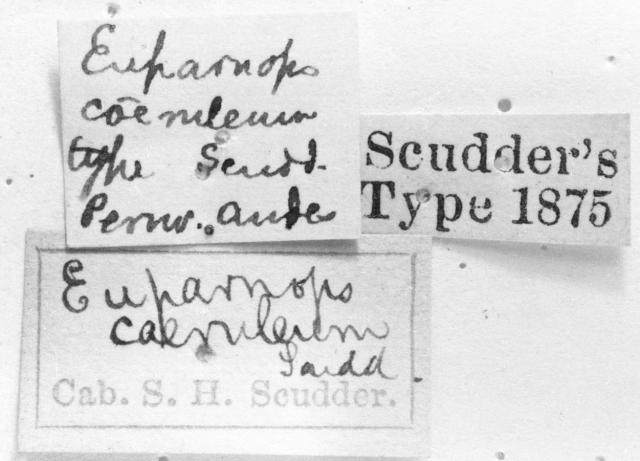 Euparnops
caeruleum
type Scudd.
Peruv. Andes
Scudder's
Type 1875
Euparnops
caeruleum
Scudd
Cab. S. H. Scudder.